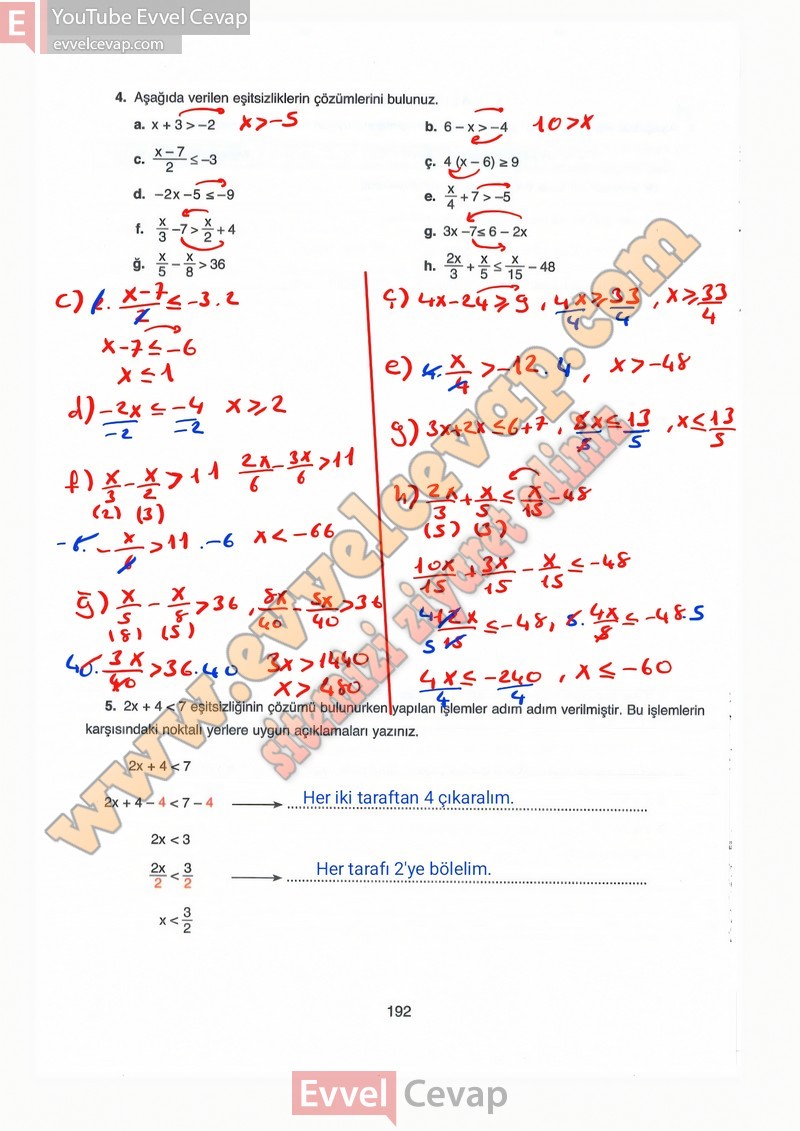 E YouTube Evvel Cevap
evvelcevap.com
4. Aşağıda verilen eşitsizliklerin çözümlerini bulunuz.
a. x + 3 > –2 x > –5
b. 6 – x > –4 10 > x
c. (x – 7)/2 ≤ –3
ç. 4 (x – 6) ≥ 9
d. –2x –5 ≤ –9
e. x/4 + 7 > –5
f. x/3 –7 > x/2 + 4
g. 3x –7 ≤ 6 – 2x
ğ. x/5 – x/8 > 36
h. 2x/3 + x/5 ≤ x/15 – 48
c) 2. (x–7)/2 ≤ –3.2
x–7 ≤ –6
x ≤ 1
d) –2x/–2 ≤ –4/–2 x ≥ 2
f) x/3 – x/2 > 11 2x/6 – 3x/6 > 11
(2) (3)
–6. –x/6 > 11 .–6 x < –66
ğ) x/5 – x/8 > 36, 8x/40 – 5x/40 > 36
(8) (5)
40. 3x/40 > 36.40 3x > 1440
x > 480
ç) 4x–24 ≥ 9, 4x/4 ≥ 33/4, x ≥ 33/4
e) 4. x/4 > –12.4, x > –48
g) 3x+2x ≤ 6+7, 5x/5 ≤ 13/5, x ≤ 13/5
h) 2x/3 + x/5 ≤ x/15 – 48
(5) (3)
10x/15 + 3x/15 – x/15 ≤ –48
4 12x/15 5 ≤ –48, 5. 4x/5 ≤ –48.5
4x/4 ≤ –240/4, x ≤ –60
5. 2x + 4 < 7 eşitsizliğinin çözümü bulunurken yapılan işlemler adım adım verilmiştir. Bu işlemlerin
karşısındaki noktalı yerlere uygun açıklamaları yazınız.
2x + 4 < 7
2x + 4 – 4 < 7 – 4 Her iki taraftan 4 çıkaralım.
2x < 3
2x/2 < 3/2 Her tarafı 2'ye bölelim.
x < 3/2
www.evvelcevap.com
sitemizi ziyaret ediniz
192
Evvel Cevap